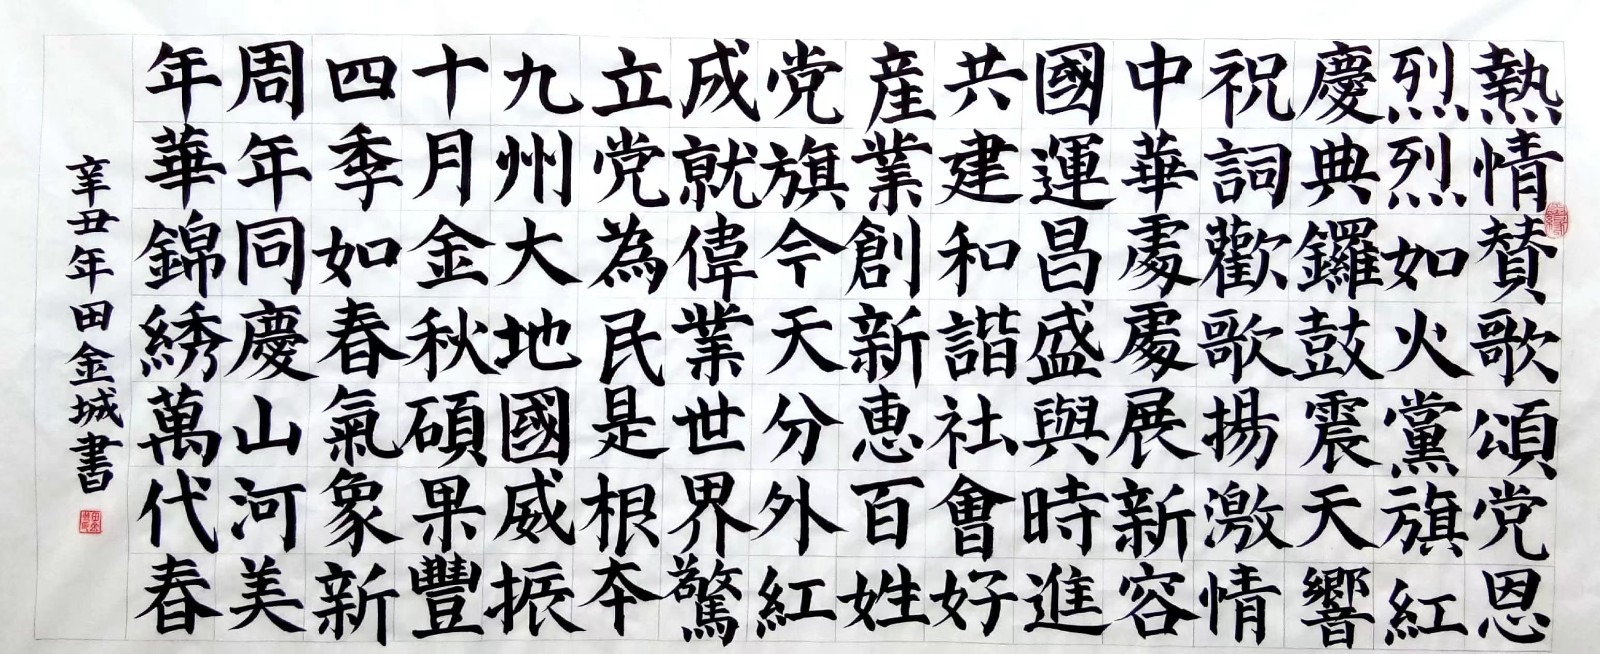 熱情賛歌頌党恩
烈烈如火黨旗紅
慶典鑼鼓震天響
祝詞歡歌揚激情
中華處處展新容
國運昌盛與時進
共建和諧社會好
産業創新恵百姓
党旗今天分外紅
成就偉業世界驚
立党為民是根本
九州大地國威振
十月金秋碩果豐
四季如春氣象新
周年同慶山河美
年華錦綉萬代春
辛丑年田金城書